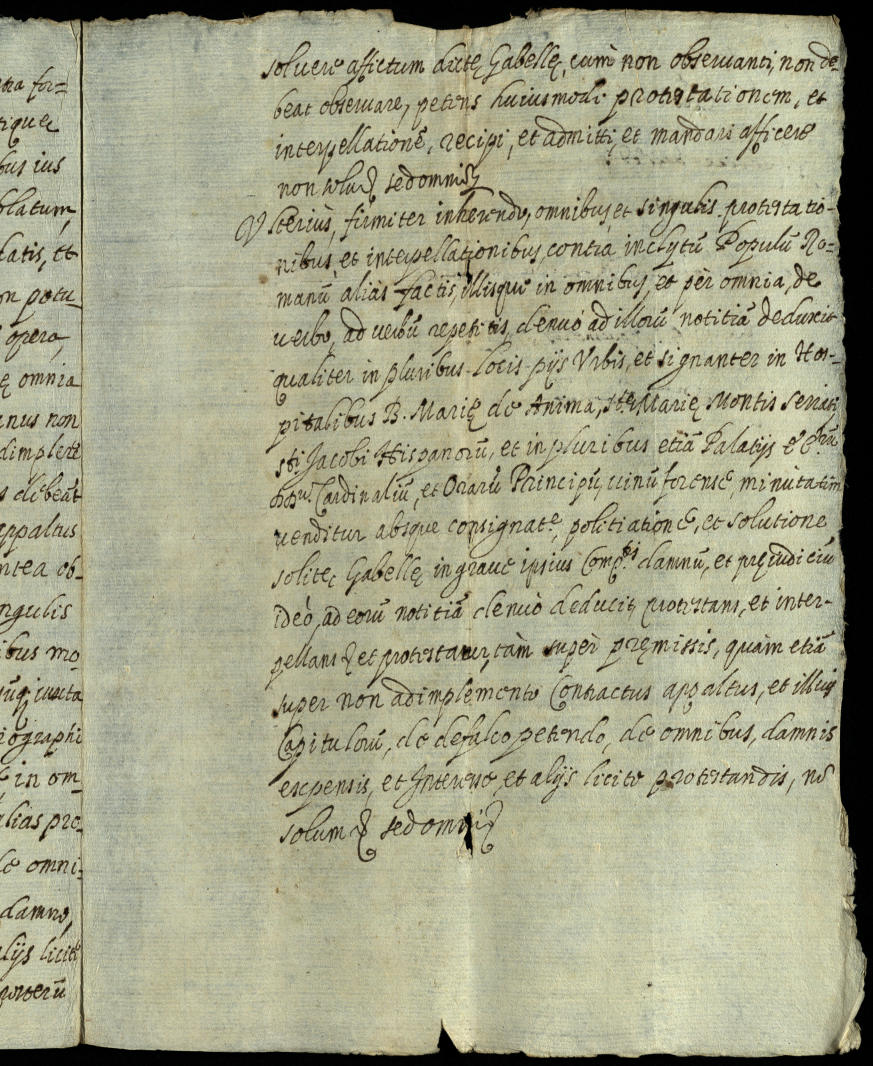 tra for=
tique
bus ius
olatum,
latis, et
on potu-
opera,
ę omnia
anus non
dimplere
s debeat
appaltus
ntea ob-
ngulis
ibus mo-
iuxta
iographi
in om-
alias pro-
de omni-
damno,
alijs licite
soluere affictum dictę Gabellę, cum non obseruanti, non de-
beat obseruare, petens huiusmodi protestationem, et
interpellationē, recipi, et admitti, et mandari afficere
non solu sed omni
Vlterius, firmiter inherendo, omnibus, et singulis protestatio-
nibus, et interpellationibus, contra inclytū Populū Ro=
manū alias factis, illisque in omnibus, et per omnia, de
uerbo, ad uerbū repetitis, denuò ad illorū notitiā deducit
qualiter in pluribus locis pijs Vrbis, et signanter in Hos-
pitalibus B. Marię de Anima, Stę Marię Montis Serrati
Sti Jacobi Hispanorū, et in pluribus etiā Palatijs
Cardinaliū, et Orarū Principū, uinū forense, minutatim
uenditur absque consignatē, politiationē, et solutione
solitę Gabellę in graue ipsius damnū, et pręiudiciū
ideò, ad eorū notitiā denuò deducit, protestans, et inter-
pellans et protestatur, tàm supèr pręmissis, quàm etiā
super non adimplemento Contractus appaltus, et illius
Capitulorū, de defalco petendo, de omnibus, damnis
expensis, et Interesse, et alijs licite protestandis, nō
solum sed omni